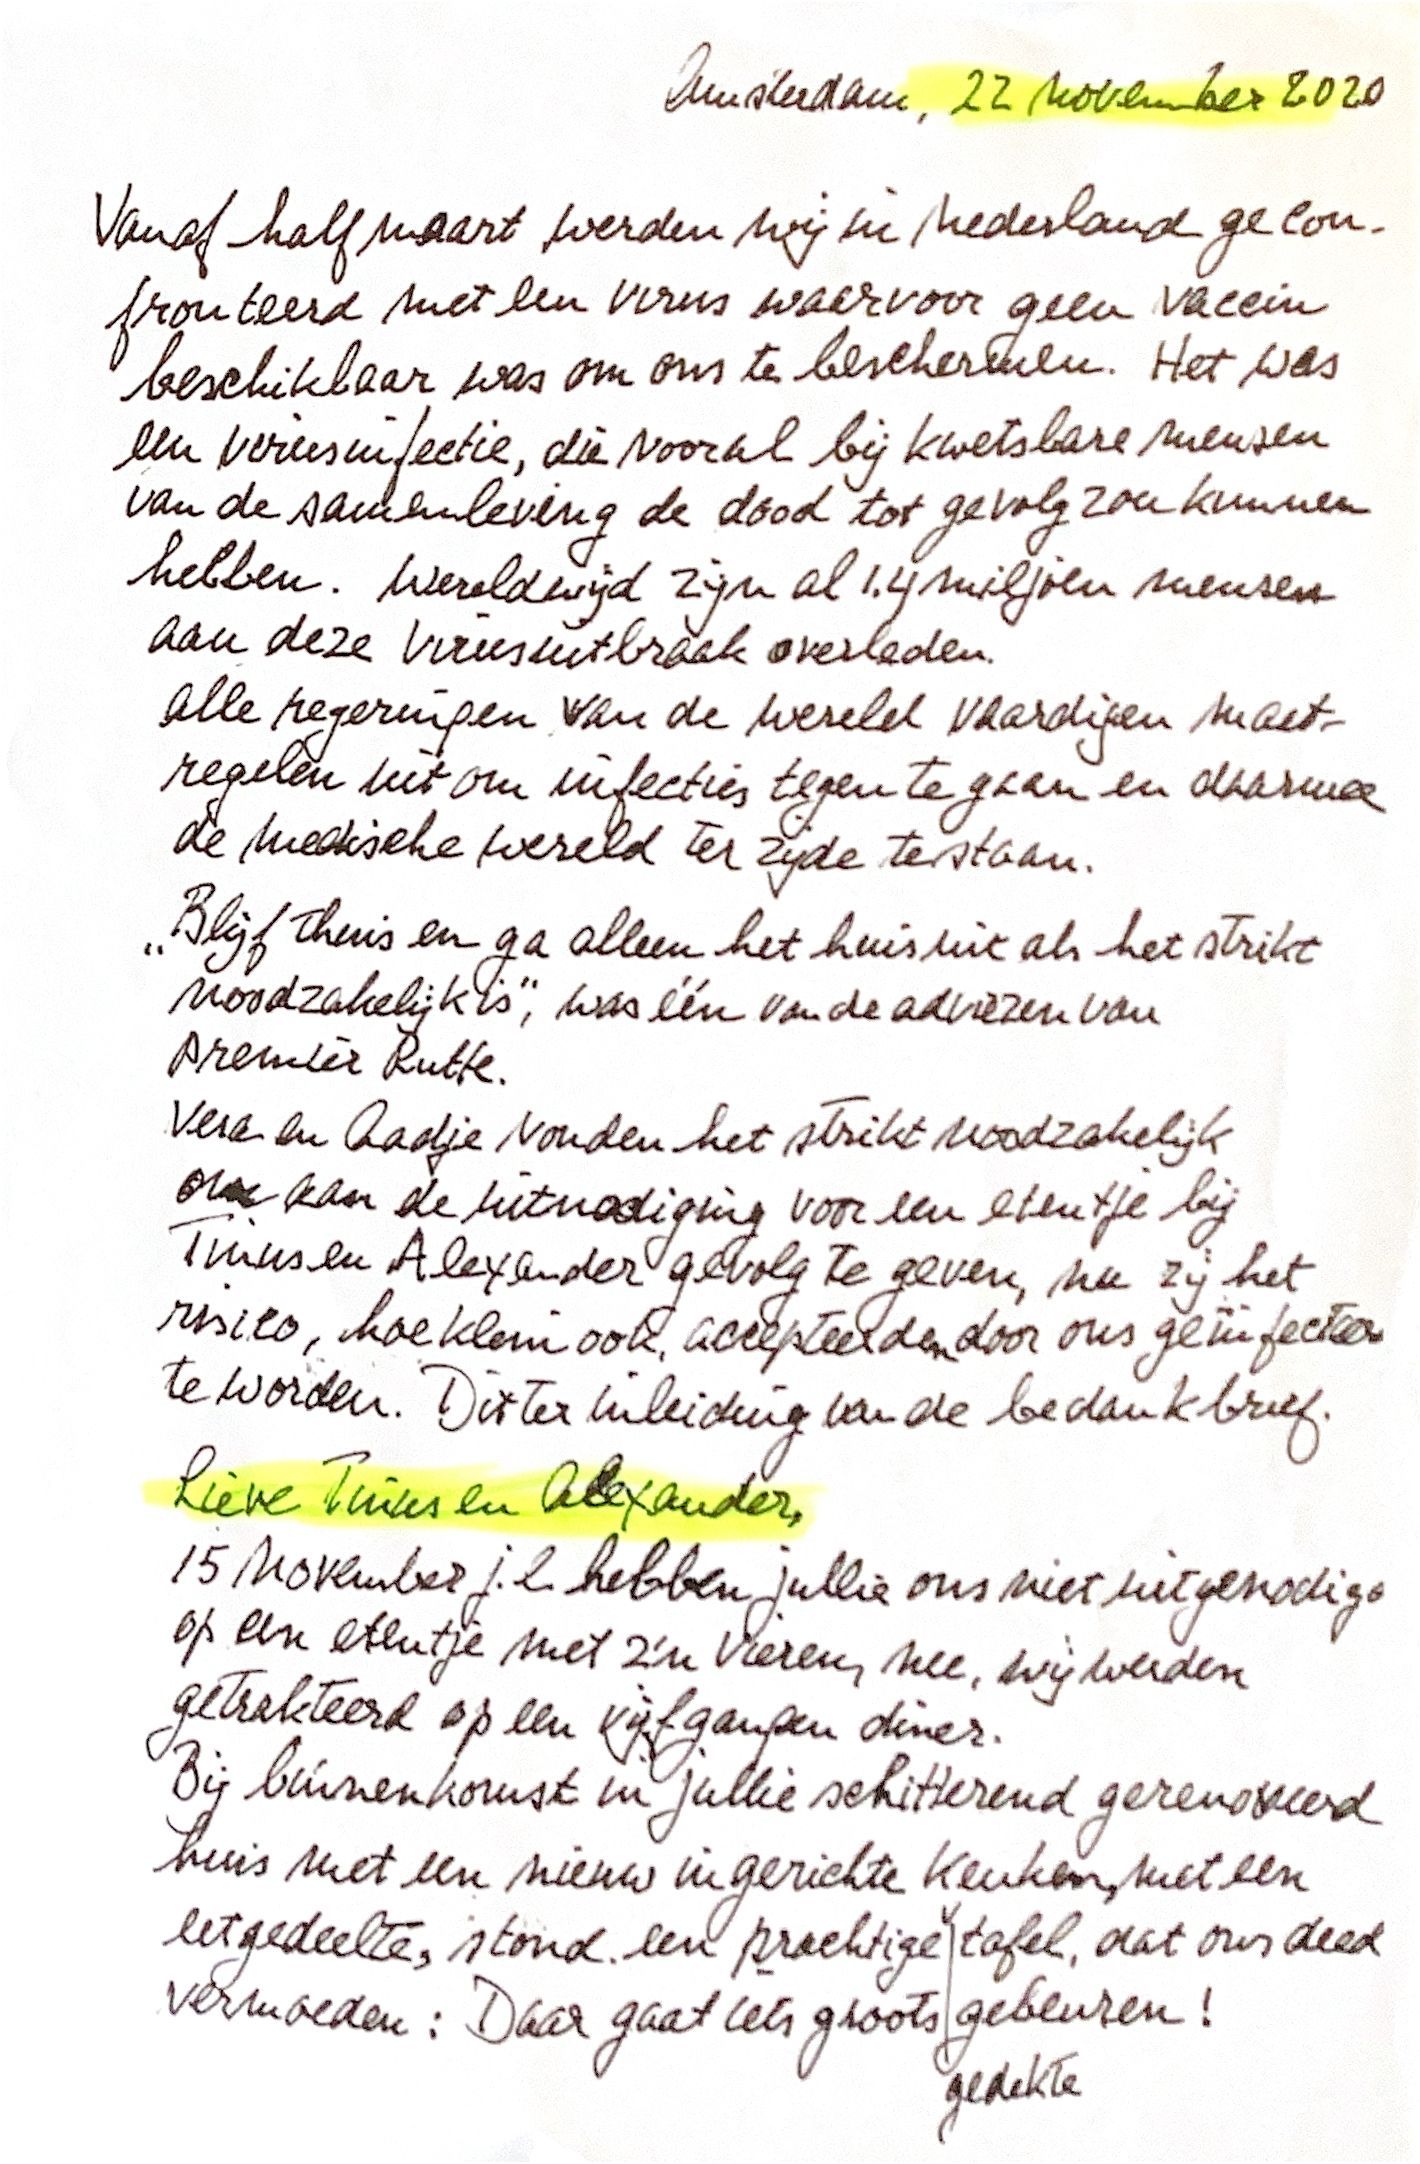 Amsterdam, 22 november 2020
Vanaf half maart werden wij in Nederland gecon-
fronteerd met een virus waarvoor geen vaccin
beschikbaar was om ons te beschermen. Het was
een virusinfectie, die vooral bij kwetsbare mensen
van de samenleving de dood tot gevolg zou kunnen
hebben. Wereldwijd zijn al 1.4 miljoen mensen
aan deze virusuitbraak overleden.
Alle regeringen van de wereld vaardigen maat-
regelen uit om infecties tegen te gaan en daarmee
de medische wereld ter zijde te staan.
„Blijf thuis en ga alleen het huis uit als het strikt
noodzakelijk is", was één van de adviezen van
premier Rutte.
Vera en Aadje vonden het strikt noodzakelijk
om aan de uitnodiging voor een etentje bij
Tinus en Alexander gevolg te geven, nu zij het
risico, hoe klein ook, accepteerden door ons geïnfecteer
te worden. Dit ter inleiding van de bedankbrief.
Lieve Tinus en Alexander,
15 november j.l. hebben jullie ons niet uitgenodigd
op een etentje met z'n vieren, nee, wij werden
getrakteerd op een vijfgangen diner.
Bij binnenkomst in jullie schitterend gerenoveerd
huis met een nieuw ingerichte keuken, met een
eetgedeelte, stond een prachtige tafel, dat ons deed
vermoeden: Daar gaat iets groots gebeuren!
gedekte